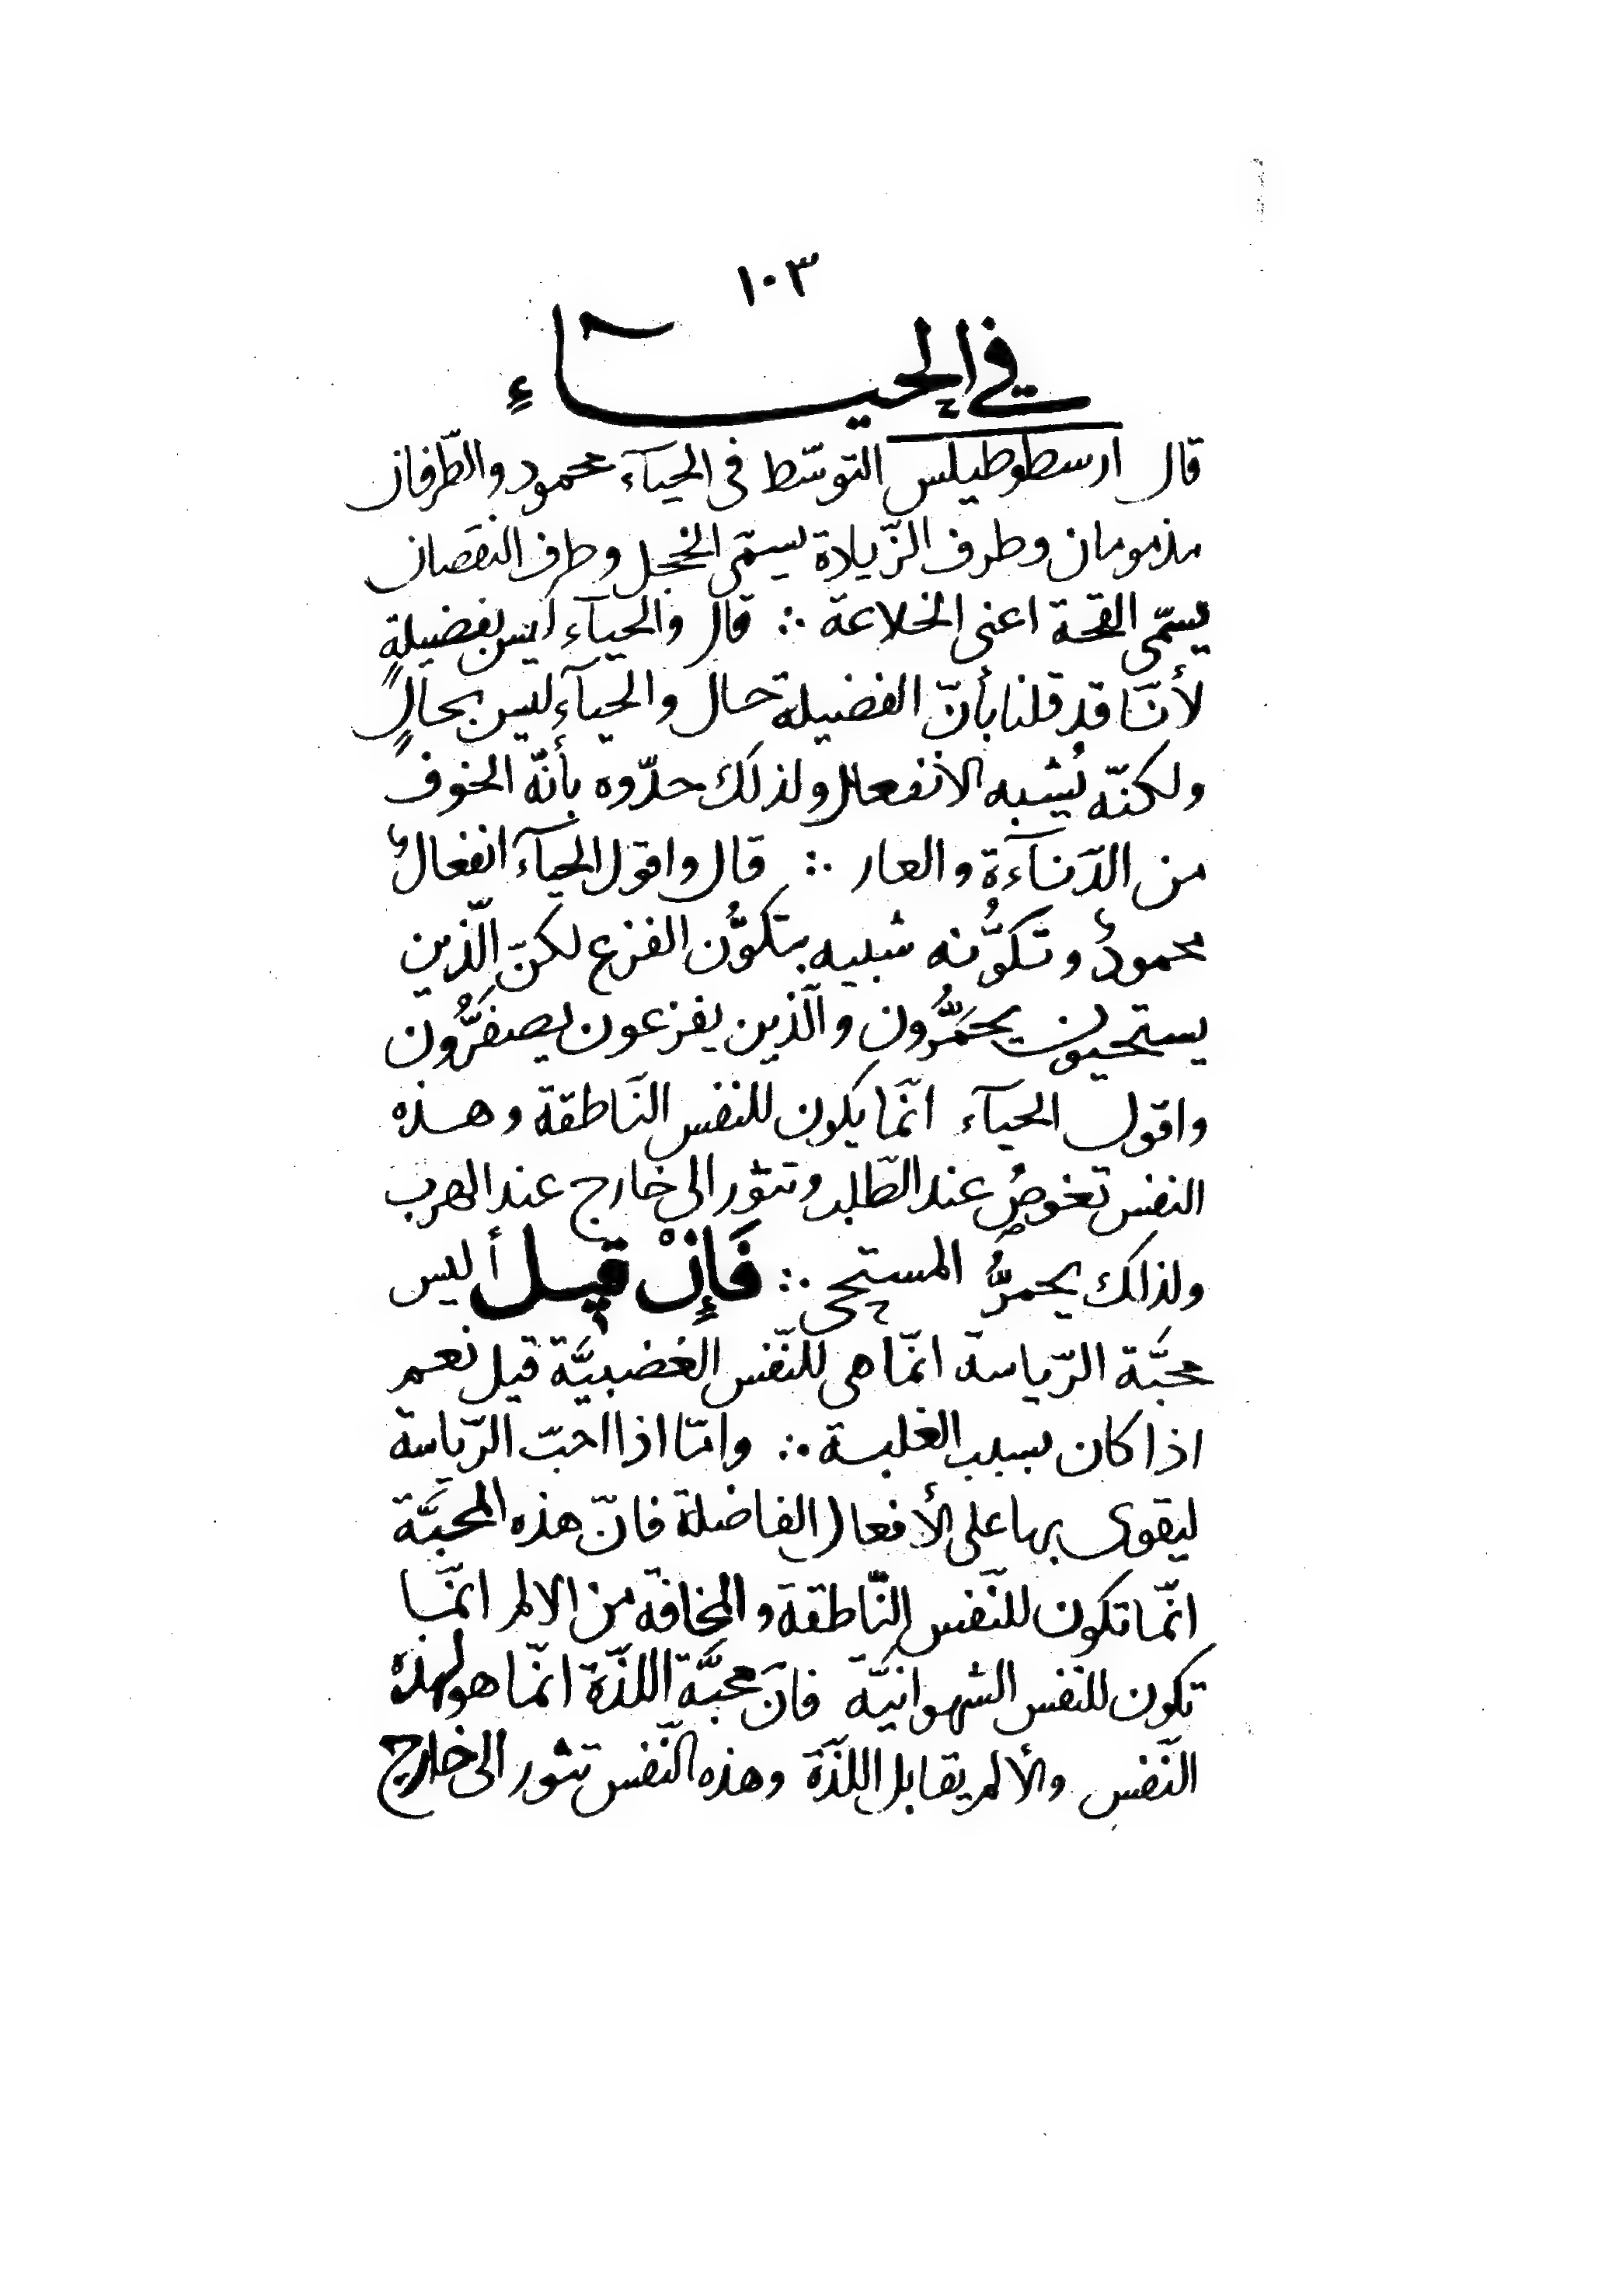 ١٠٣
في الحيـــاءِ
قال ارسطوطيلس التوسّط فى الحيآء محمود والطّرفان
مذمومان وطرف الزّيادة يسمّى الخجل وطرف النقصان
يسمّى القحة اعنى الخلاعة ∴ قال والحيآءِ ليس بفضيلةٍ
لأنّا قد قلنا بأنّ الفضيلة حال والحيآءِ ليس بحالٍ
ولكنّه يُشبه الانفعال ولذلك حدّوه بأنّه الخوف
من الدّنآءة والعار ∴ قال واقول الحيآء انفعالٌ
محمودٌ وتكوُّنه شبيه بتكوُّن الفزع لكنّ الّذين
يستحيون يحمَرُّون والّذين يفزعون يصفَرُّون
واقول الحيآء انّما يكون للنفس النّاطقة وهذه
النفس تغوصُ عند الطّلب وتثور الى خارج عند الهرب
ولذلك يحمرُّ المستحى ∴ فَإِنْ قيل أليس
محبَّة الرّياسة انّما هى للنّفس الغضبيَّة قيل نعم
اذا كان بسبب الغلبة ∴ وامّا اذا احبّ الرّياسة
ليقوى بها على الأفعال الفاضلة فانّ هذه المحبَّة
انّما تكون للنّفس النّاطقة والمخافة من الالم انّما
تكون للنفس الشهوانيَّة فانّ محبَّة اللذّة انّما هو لهذه
النّفس والألم يقابل اللذّة وهذه النّفس تثور الى خارج